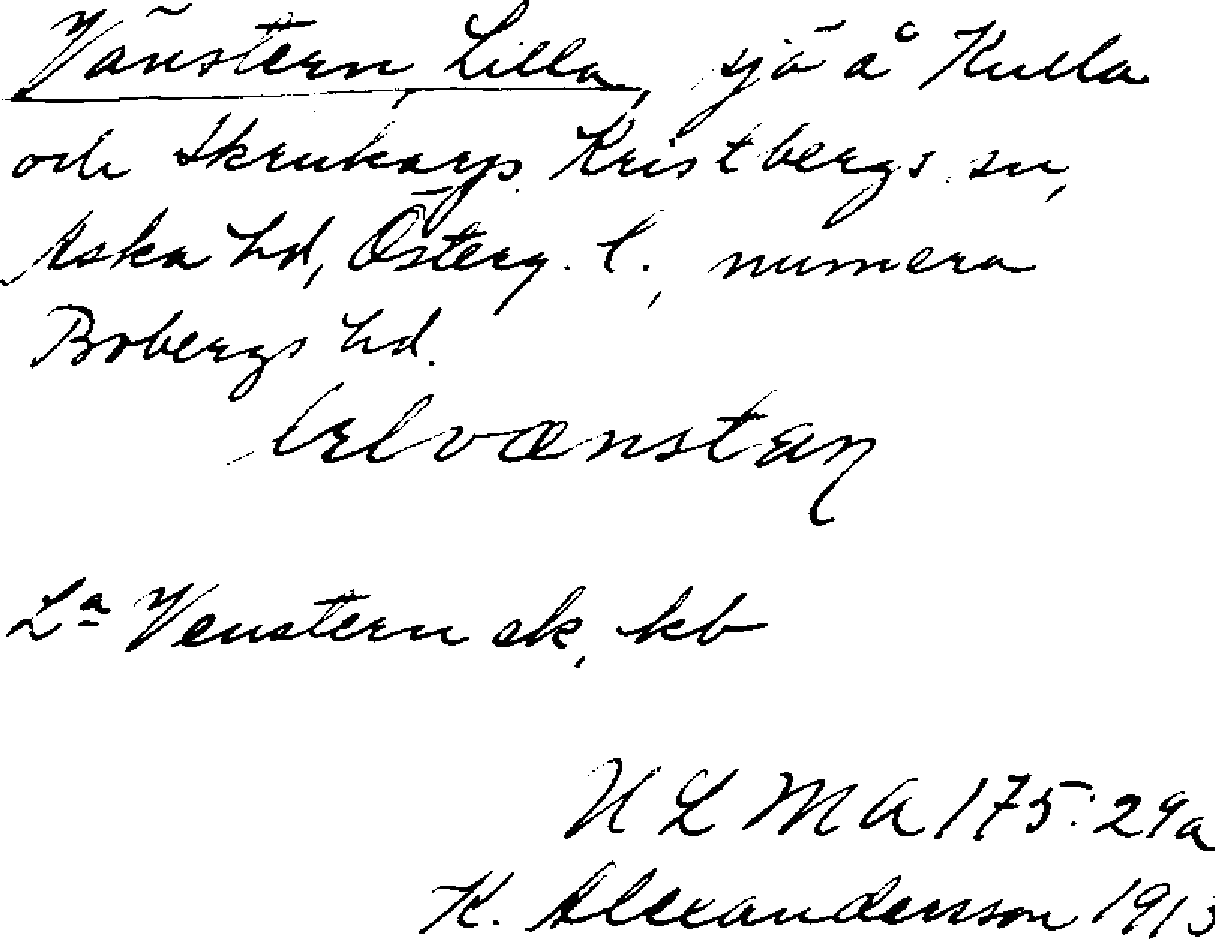 Vänstern, Lilla, sjö å Kulla
och Skrukarp Kristbergs sn,
Aska hd, Österg. l., numera
Bobergs hd.
lelvænstaɳ
La Venstern ek, kb
ULMA 175:29a
K. Alexandersson 1913